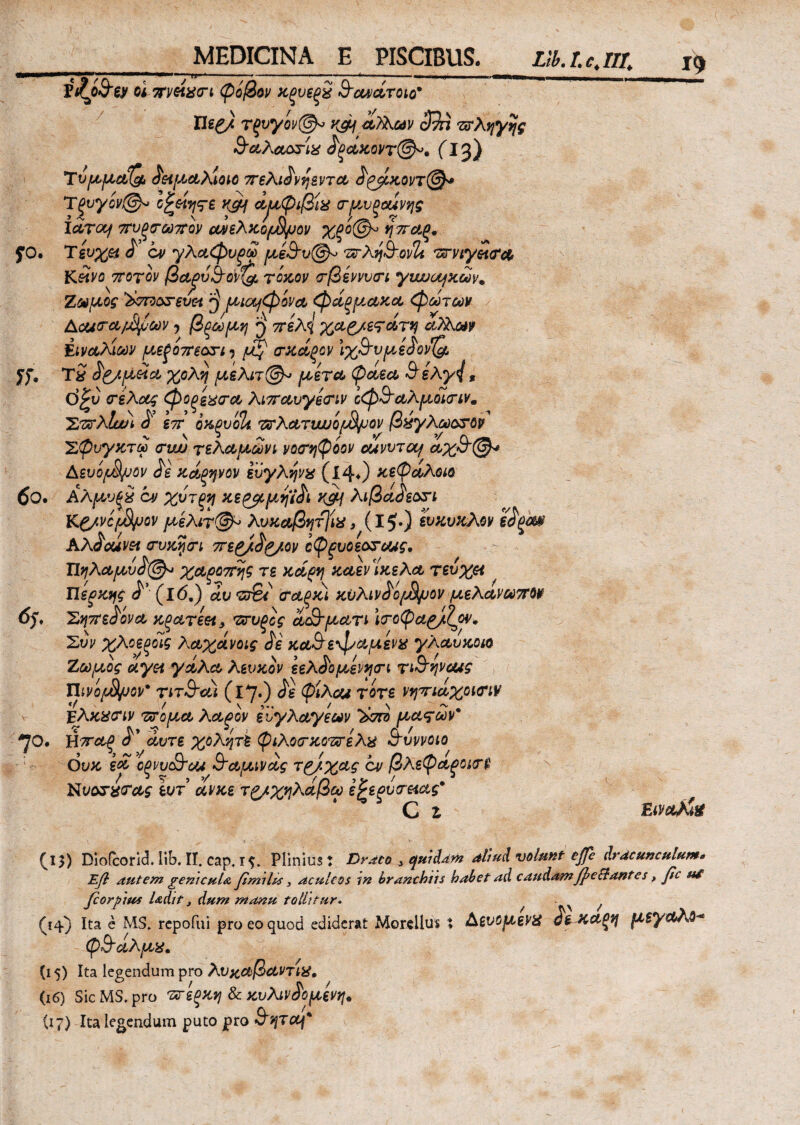 MEDICINA E PISCIBUS. Lib. I. c. III. 19
ἰξόθεν οἱ πνείυσι φόβον κρυερῦ θανάτοιο·
Περὶ τρυγόν⊕ καὶ ἄλλων ἐπὶ πληγῆς
θαλασσίυ δράκοντ⊕. (13)
Τύμματα δειμαλέοιο πελιδνήεντα δράκοντ⊕
Τρυγόν⊕ ὀξείης τε καὶ ἀμφιβίυ σμυραίνης
ἰᾶται πυρσωπὸν εἰνελκόμενον χρό⊕ ἧπαρ.
50. Τεύχει δ' ἐν γλαφυρῷ μέθυ⊕ πληθοντι πνιγεῖσα
Κεῖνο ποτὸν βαρύθοντα τόκον σβέννυσι γυναικῶν.
Ζωμὸς ἀποσσεύει καὶ μιαιφόνα φάρμακα φώτων
Δαισαμένων, βρώμη καὶ πέλει χαριεστάτη ἄλλων
Εἰναλίων μερόπεσσι, μετ' σκάρον ἰχθυμέδοντα
55. Τῦ δριμεῖα χολὴ μέλιτ⊕ μέτα φάεα θέλγει,
Ὀξὺ σέλας φορέυσα λιπαυγέσιν ὀφθαλμοῖσιν.
Σπλὴν δ' ἐπ' ὀκρυόεντι πλατυνόμενον βυγλώσσον
Σφυγκτῷ σὺν τελαμῶνι νοσηφόον αἴνυται ἄχθ⊕
Δευόμενον δὲ κάρηνον ἐυγλήνυ (14.) κεφάλοιο
60. Ἁλμυρῦ ἐν χύτρῃ κεραμηΐδι καὶ λιβάδεσσι
Κρινόμενον μέλιτ⊕ λυκαβηττίυ, (15.) εὐκυκλον ἕδραν
Ἀλδαίνει συκῇσι περίδριον ὀφρυοέσσαις.
Πηλαμύδ⊕ χαροπῆς τε κάρη καὲν ἴκελα τεύχει
Πέρκης δ' (16.) αὖ περὶ σαρκὶ κυλινδόμενον μελάνωπον
65. Σηπεδόνα κρατέει, πυρὸς ἄσθματι ἰσοφαρίζον.
Σὺν χλοεροῖς λαχάνοις δὲ καθεψαμένυ γλαύκοιο
Ζωμὸς ἄγει γάλα λευκὸν ἐελδομένῃσι τιθήναις
Πινόμενον· τιτθαὶ (17.) δὲ φίλαι τότε νηπιάχοισιν
ἕλκυσιν πόμα λαρὸν ἐυγλαγέων ἀπὸ μαστῶν·
70. Ἧπαρ δ' αὖτε χολῆτε φιλοσκοπέλυ θύννοιο
Οὐκ ἐᾷ ὄρνυσθαι θαμινὰς τρίχας ἐν βλεφάροισι
Νυσσύσας εὖτ' ἄνκε τριχηλάβῳ ἐξερύσειας·
C 2 Εἰναλίυ
(13) Dioscorid. lib. II. cap. 15. Plinius: Draco, quidam aliud volunt esse dracunculum.
Est autem genicula similis, aculeos in branchiis habet ad caudam spectantes, sic ut
scorpius ladit, dum manu tollitur.
(14) Ita è MS. reposui pro eo quod ediderat Morellus: Δευομένυ δὲ κάρη μεγαλο-
φθάλμυ.
(15) Ita legendum pro λυκαβαντίυ.
(16) Sic MS. pro πέρκη & κυλινδομένη.
(17) Ita legendum puto pro θῆται·